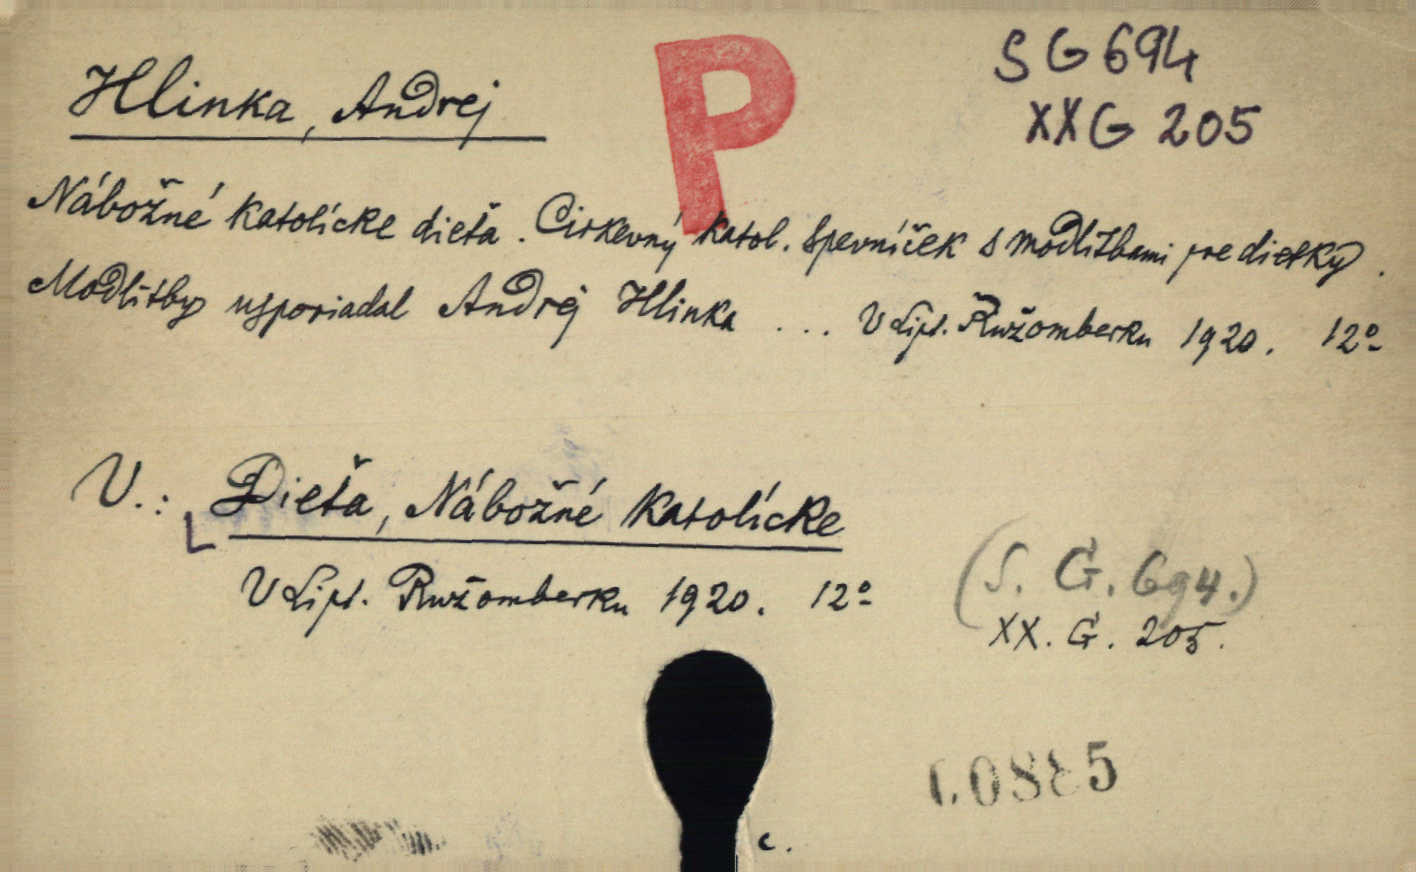 Hlinka, Andrej
P
S G 694
XX G 205
Nábožné katolícke dieťa. Cirkevný katol. spevníček s modlitbami pre dietky.
Modlitby usporiadal Andrej Hlinka ... V Lipt. Ružomberku 1920. 12º
V.: Dieťa, Nábožné katolícke
V Lipt. Ružomberku 1920. 12º
(S. G. 694.)
XX. G. 205.
c.